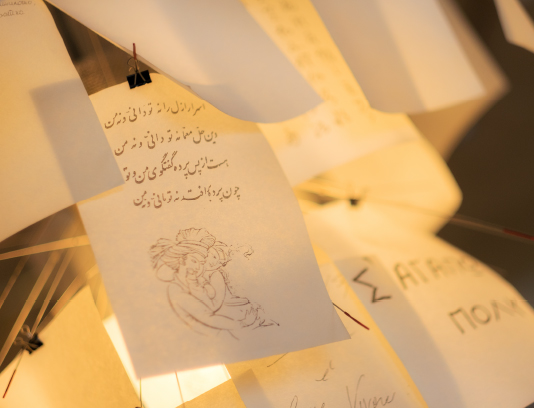 اسرار ازل را نه تو دانی و نه من
وین حل معما نه تو دانی و نه من
هست از پس پرده گفتگوی من و تو
چون پرده بر افتد نه تو مانی و نه من
Σ ΑΓΑΠ
ΠΟΛΥ
el
Vivere